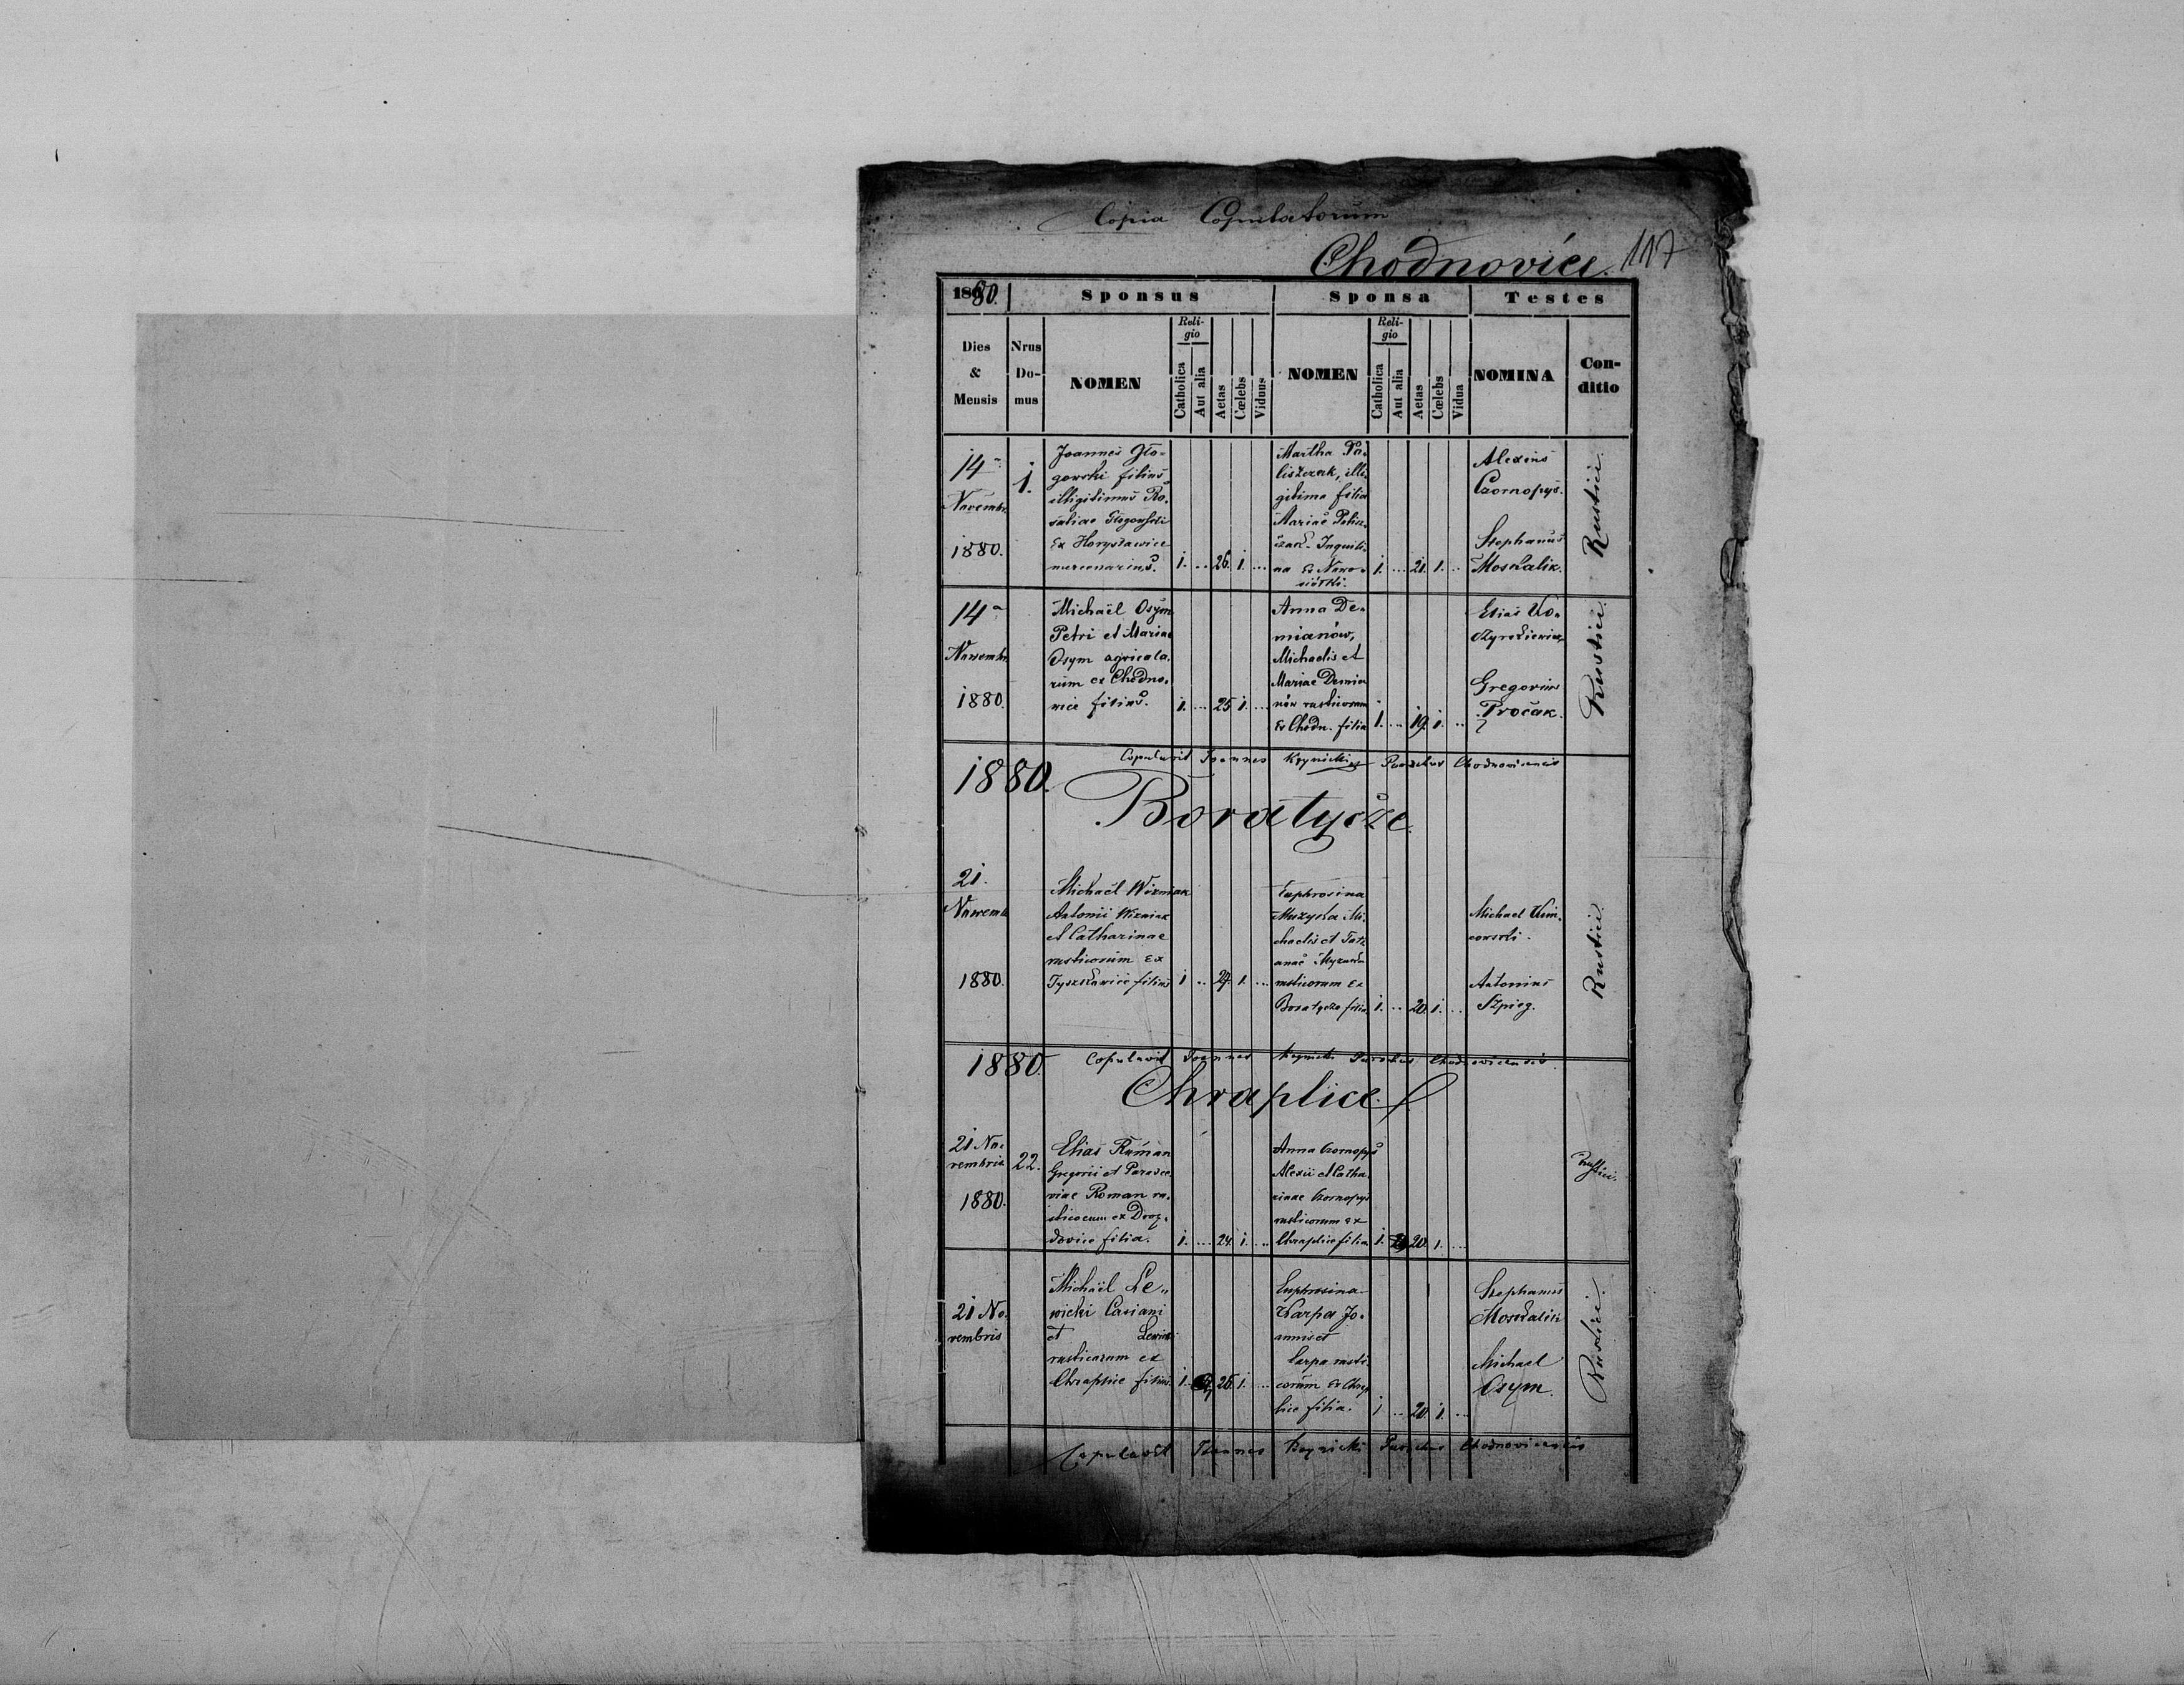 Copia Copulatorum
Chodnovice. 117
1880. Sponsus Sponsa Testes
Dies & Mensis Nrus Domus NOMEN Religio Catholica Aut alia Aetas Cœlebs Viduus NOMEN Religio Catholica Aut alia Aetas Cœlebs Vidua NOMINA Conditio
14ª
Novembr.
1880.
1.
Joannes Gło-
gowski filius
illigitimus Ro-
saliae Głogowski
Ex Horysławice
mercenarius. 1. ... 26. 1. ...
Martha Pa-
liszczak, illi-
gitima filia
Mariae
Inquili-
na Ex Nowo-
siółki. 1. ... 21. 1. ...
Alexius
Czornopys.
Stephanus
Moskalik.
Rustici.
14ª
Novembr.
1880.
Michaël Osym
Petri et Mariae
Osym agricola-
rum ex Chodno-
vice filius. 1. ... 25 1. ...
Anna De-
mianów,
Michaelis et
Mariae Demia
nów rusticorum
Ex Chodn. filia 1. ... 19. 1. ...
Elias
Gregorius
Procak.
Rustici.
Copulavit Joannes Krynicki Parochus Chodnovicensis
1880.
Boratycze.
21.
Novemb.
1880.
Michaël Wizniak
Antonii Wizniak
et Catharinae
rusticorum Ex
Tyszkowice filius 1 .. 24. 1. ...
Euphrosina
Muzyka Mi-
chaelis et Tati
anae
rusticorum Ex
Boratycze filia 1. ... 20. 1. ...
Michael
Antonius
Szpieg.
Rustici.
1880. Copulavit Joannes Krynicki Parochus Chodnovicensis.
Chraplice.
21 No-
vembris
1880.
22.
Elias Roman
Gregorii et Parasce-
viae Roman ru-
sticorum ex Droz-
dovice filia. 1. ... 24. 1. ...
Anna Czornopys
Alexii et Catha-
rinae Czornopys
rusticorum ex
Chraplice filia 1. 20. 1. ...
Rustici.
21 No-
vembris
Michaël Le-
wicki Casiani
et Lewicki
rusticorum ex
Chraplice filius. 1. 26. 1. ...
Euphrosina
Karpa Jo-
annis et
Carpa rusti-
corum Ex Chrap
lice filia. 1 ... 20. 1. ...
Stephanus
Moskalik
Michael
Osym.
Rustici.
Copulavit Joannes Krynicki Parochus Chodnovicensis